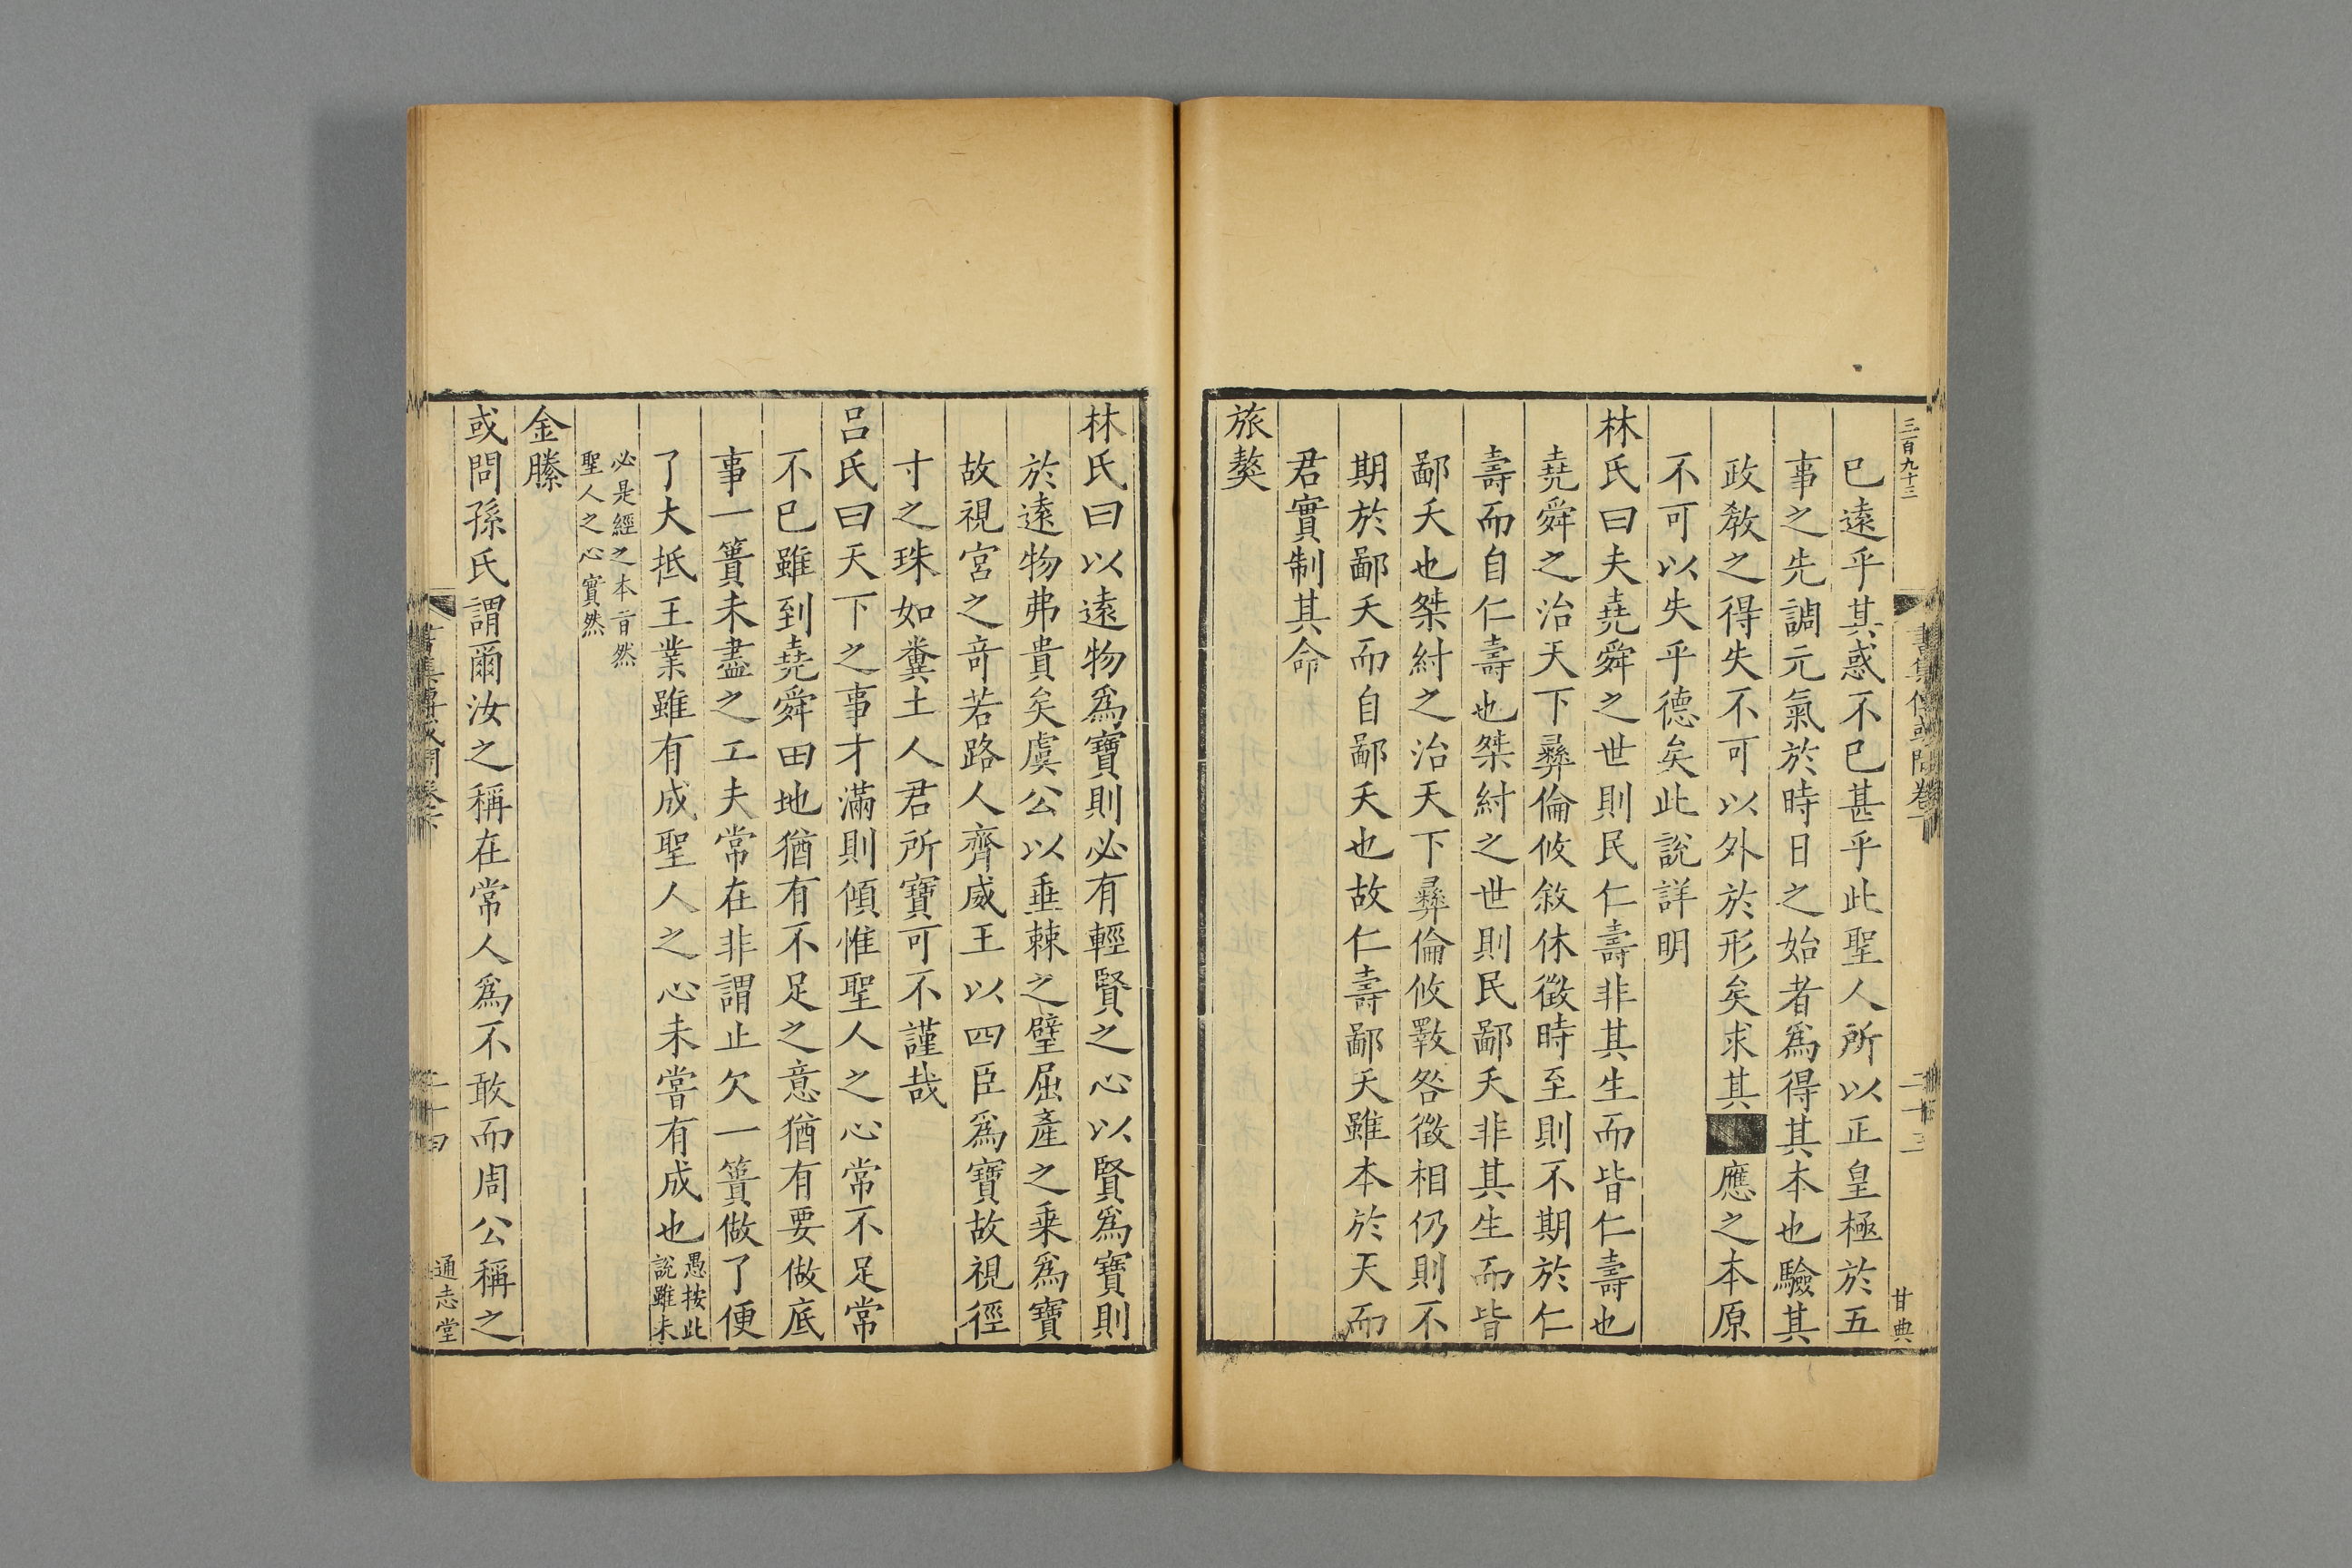 三百九十三
甘典
巳遠乎其惑不巳甚乎此聖人所以正皇極於五
事之先調元氣於時日之始者爲得其本也驗其
政敎之得失不可以外於形矣求其
應之本原
不可以失乎德矣此說詳明
林氏曰夫堯舜之世則民仁壽非其生而皆仁壽也
堯舜之治天下彞倫攸敘休徵時至則不期於仁
壽而自仁壽也桀紂之世則民鄙夭非其生而皆
鄙夭也桀紂之治天下彞倫攸斁咎徵相仍則不
期於鄙夭而自鄙夭也故仁壽鄙夭雖本於天而
君實制其命
旅獒
林氏曰以遠物爲寶則必有輕賢之心以賢爲寶則
於遠物弗貴矣虞公以垂棘之璧屈產之乗爲寶
故視宮之竒若路人齊威王以四臣爲寶故視徑
寸之珠如糞土人君所寶可不謹哉
呂氏曰天下之事才滿則傾惟聖人之心常不足常
不巳雖到堯舜田地猶有不足之意猶有要做底
事一簣未盡之工夫常在非謂止欠一簣做了便
了大抵王業雖有成聖人之心未嘗有成也愚按此
說雖未
必是經之本㫖然
聖人之心實然
金縢
或問孫氏謂爾汝之稱在常人爲不敢而周公稱之
書集傳或問卷下
二十四
通志堂